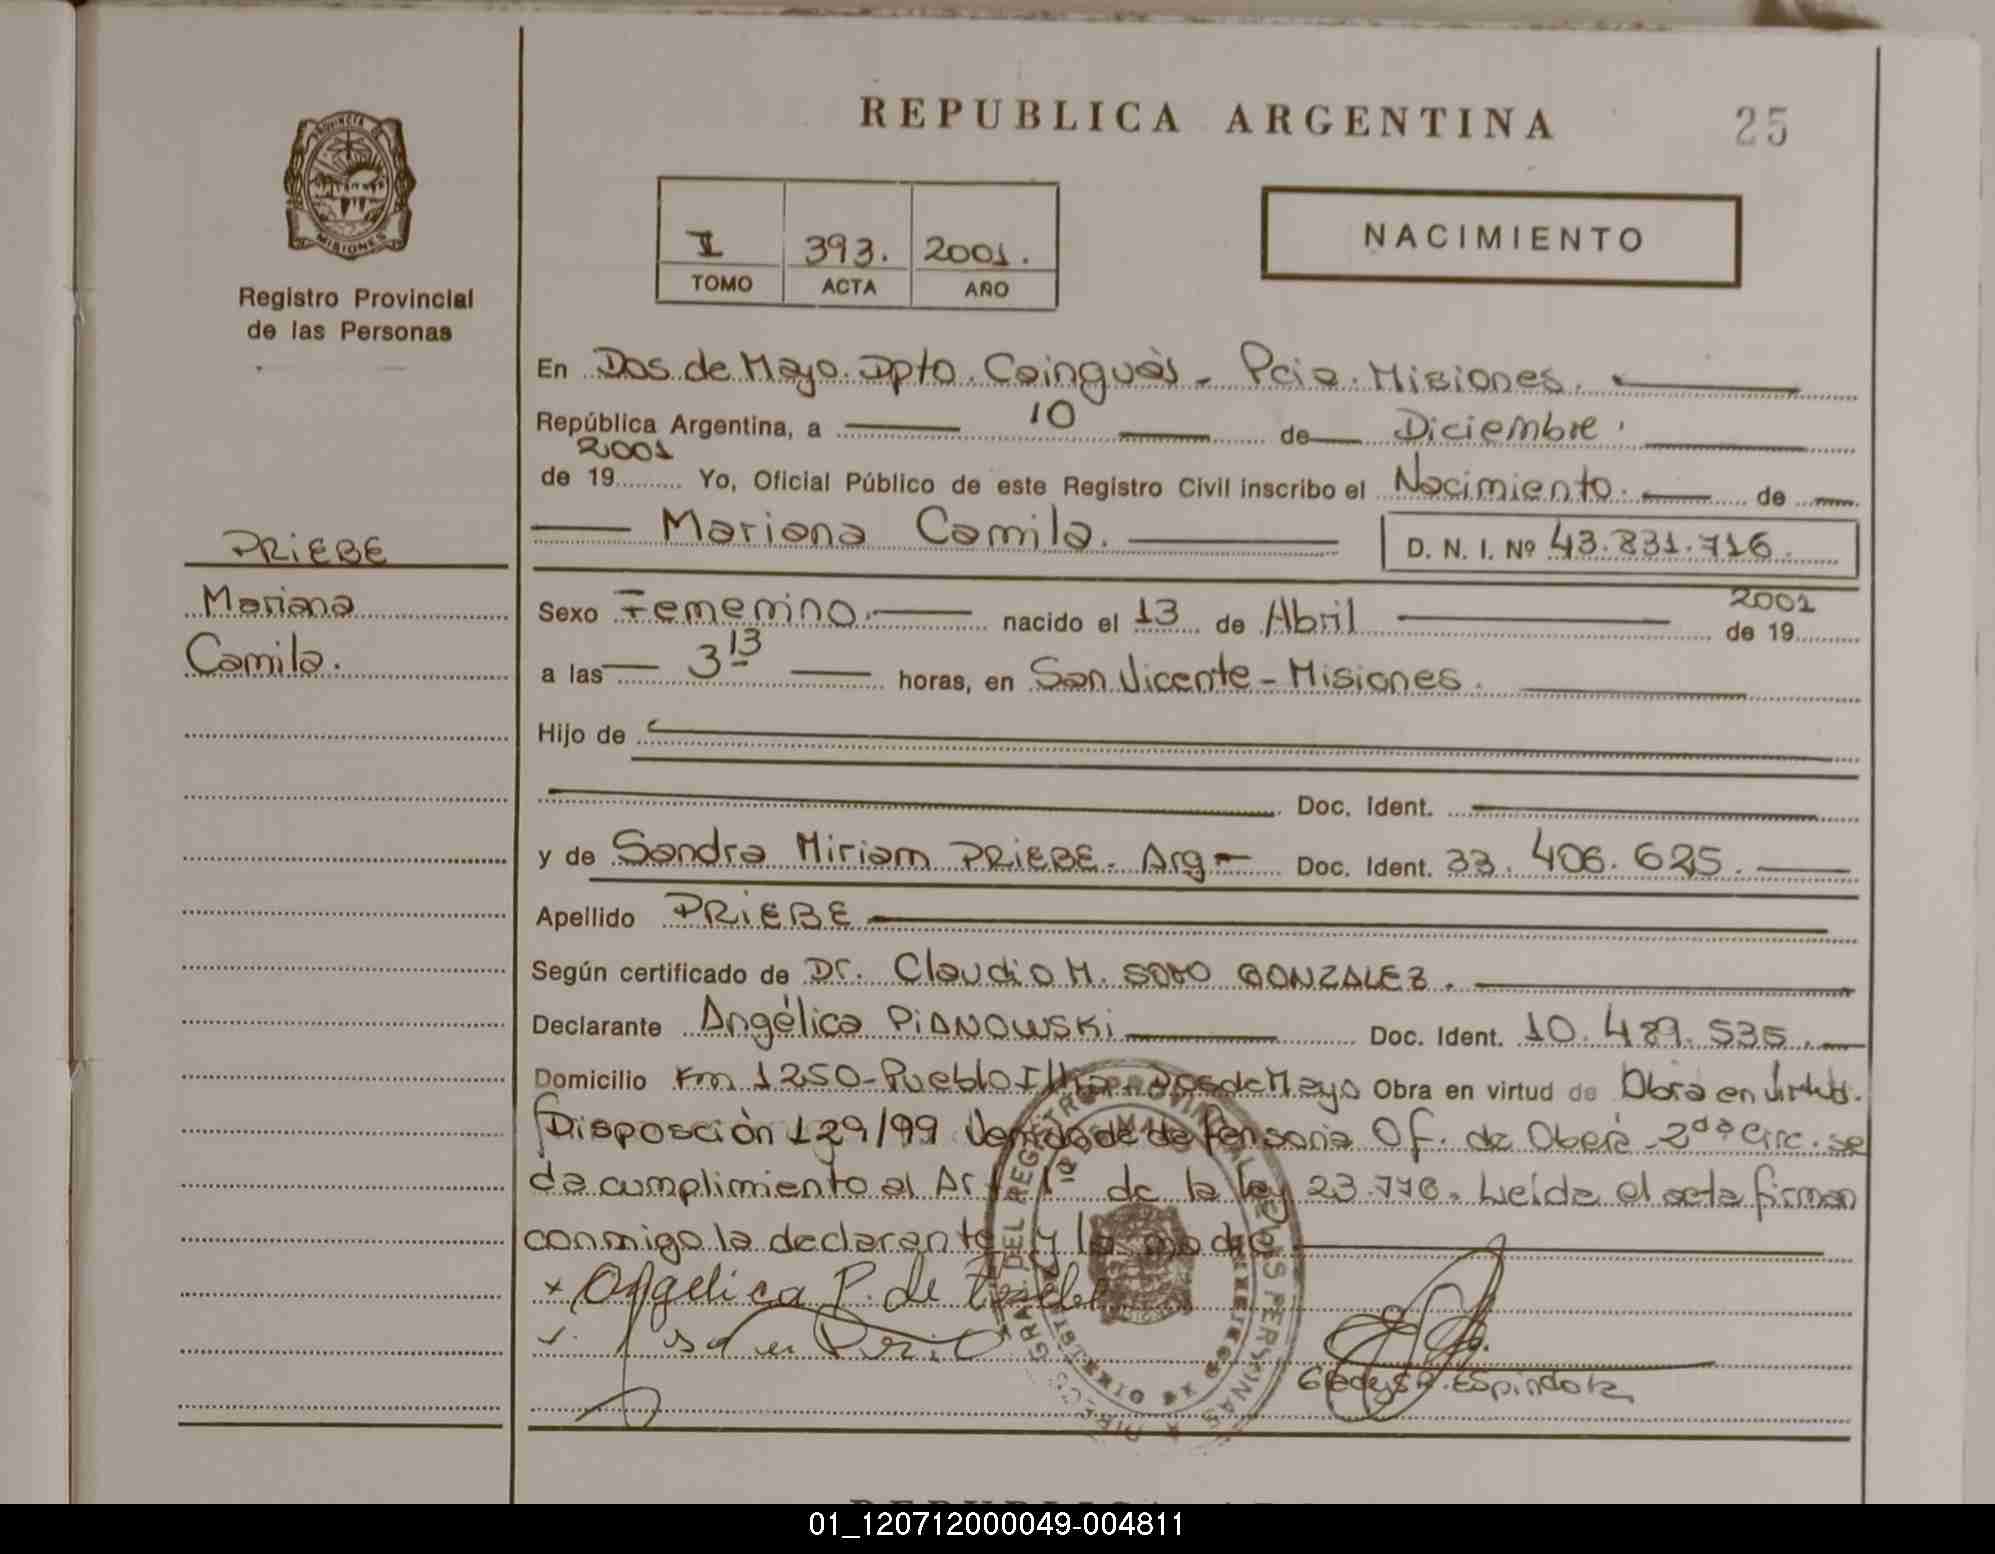 REPUBLICA ARGENTINA
25
PROVINCIA DE
MISIONES
Registro Provincial
de las Personas
I 393. 2001.
TOMO ACTA AÑO
NACIMIENTO
En Dos de Mayo. Dpto. Cainguás - Pcia. Misiones.
República Argentina, a 10 de Diciembre.
2001
de 19 Yo, Oficial Público de este Registro Civil inscribo el Nacimiento. de
Mariana Camila. D. N. I. Nº 43.831.716.
PRIEBE
Mariana
Camila.
Sexo Femenino. nacido el 13 de Abril de 19 2001
a las 3 13 horas, en San Vicente - Misiones.
Hijo de
Doc. Ident.
y de Sandra Miriam PRIEBE. Arg- Doc. Ident. 33.406.625.
Apellido PRIEBE
Según certificado de Dr. Claudio M. SOTO GONZALEZ.
Declarante Angélica PIANOWSKI Doc. Ident. 10.489.535.
Domicilio Km 1250 - Pueblo Illia - Dos de Mayo Obra en virtud de Obra en virtud.
Disposción 129/99 de defensoria Of. de Oberá - 2da Circ. se
da cumplimiento al Art 1º de la ley 23.776. Leída el acta firman
conmigo la declarante y la madre
x Angelica P. de
Gladys R. Espindola
REPUBLICA
01_120712000049-004811